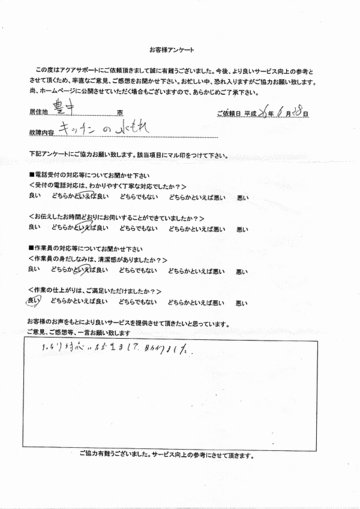 お客様アンケート
この度はアクアサポートにご依頼頂きまして誠に有難うございました。今後、より良いサービス向上の参考と
させて頂くため、率直なご意見、ご感想をお聞かせ下さい。お忙しい中、恐れ入りますがご協力お願い致します。
尚、ホームページに公開させていただく場合もございますので、あらかじめご了承下さい。
居住地 豊中 市 ご依頼日 平成 26年 6月 28日
故障内容 キッチンの水もれ
下記アンケートにご協力お願い致します。該当項目にマル印をつけて下さい。
■電話受付の対応等についてお聞かせ下さい
<受付の電話対応は、わかりやすく丁寧な対応でしたか?>
良い どちらかといえば良い どちらでもない どちらかといえば悪い 悪い
<お伝えしたお時間どおりにお伺いすることができていましたか?>
良い どちらかといえば良い どちらでもない どちらかといえば悪い 悪い
■作業員の対応等についてお聞かせ下さい
<作業員の身だしなみは、清潔感がありましたか?>
良い どちらかといえば良い どちらでもない どちらかといえば悪い 悪い
<作業の仕上がりは、ご満足いただけましたか?>
良い どちらかといえば良い どちらでもない どちらかといえば悪い 悪い
お客様のお声をもとにより良いサービスを提供させて頂きたいと思っています。
ご意見、ご感想等、一言お願い致します
対応 まして、助かりました。
ご協力有難うございました。サービス向上の参考にさせて頂きます。